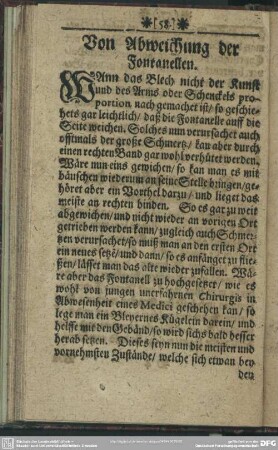 [58.]
Von Abweichung der
Fontanellen.
WAnn das Blech nicht der Kunst
und des Arms oder Schenckels pro-
portion nach gemachet ist/ so geschie-
hets gar leichtlich/ daß die Fontanelle auff die
Seite weichen. Solches nun verursachet auch
offtmals der große Schmertz/ kan aber durch
einen rechten Band gar wohl verhütet werden.
Wäre nun eins gewichen/ so kan man es mit
häuschen wiederum an seine Stelle bringen/ ge-
höret aber ein Vorthel darzu/ und lieget das
meiste an rechten binden. So es gar zu weit
abgewichen/ und nicht wieder an vorigen Ort
getrieben werden kann/ zugleich auch Schmer-
tzen verursachet/ so muß man an den ersten Ort
ein neues setzẽ/ und dann/ so es anfänget zu flie-
ßen/ lässet man das alte wieder zufallen. Wä-
re aber das Fontanell zu hochgesetzet/ wie es
wohl von jungen unerfahrnen Chirurgis in
Abwesenheit eines Medici geschehen kan/ so
lege man ein Bleyernes Kügelein darein/ und
helffe mit den Gebänd/ so wird sichs bald besser
herab setzen. Dieses seyn nun die meisten und
vornehmsten Zustände/ welche sich etwan bey
den